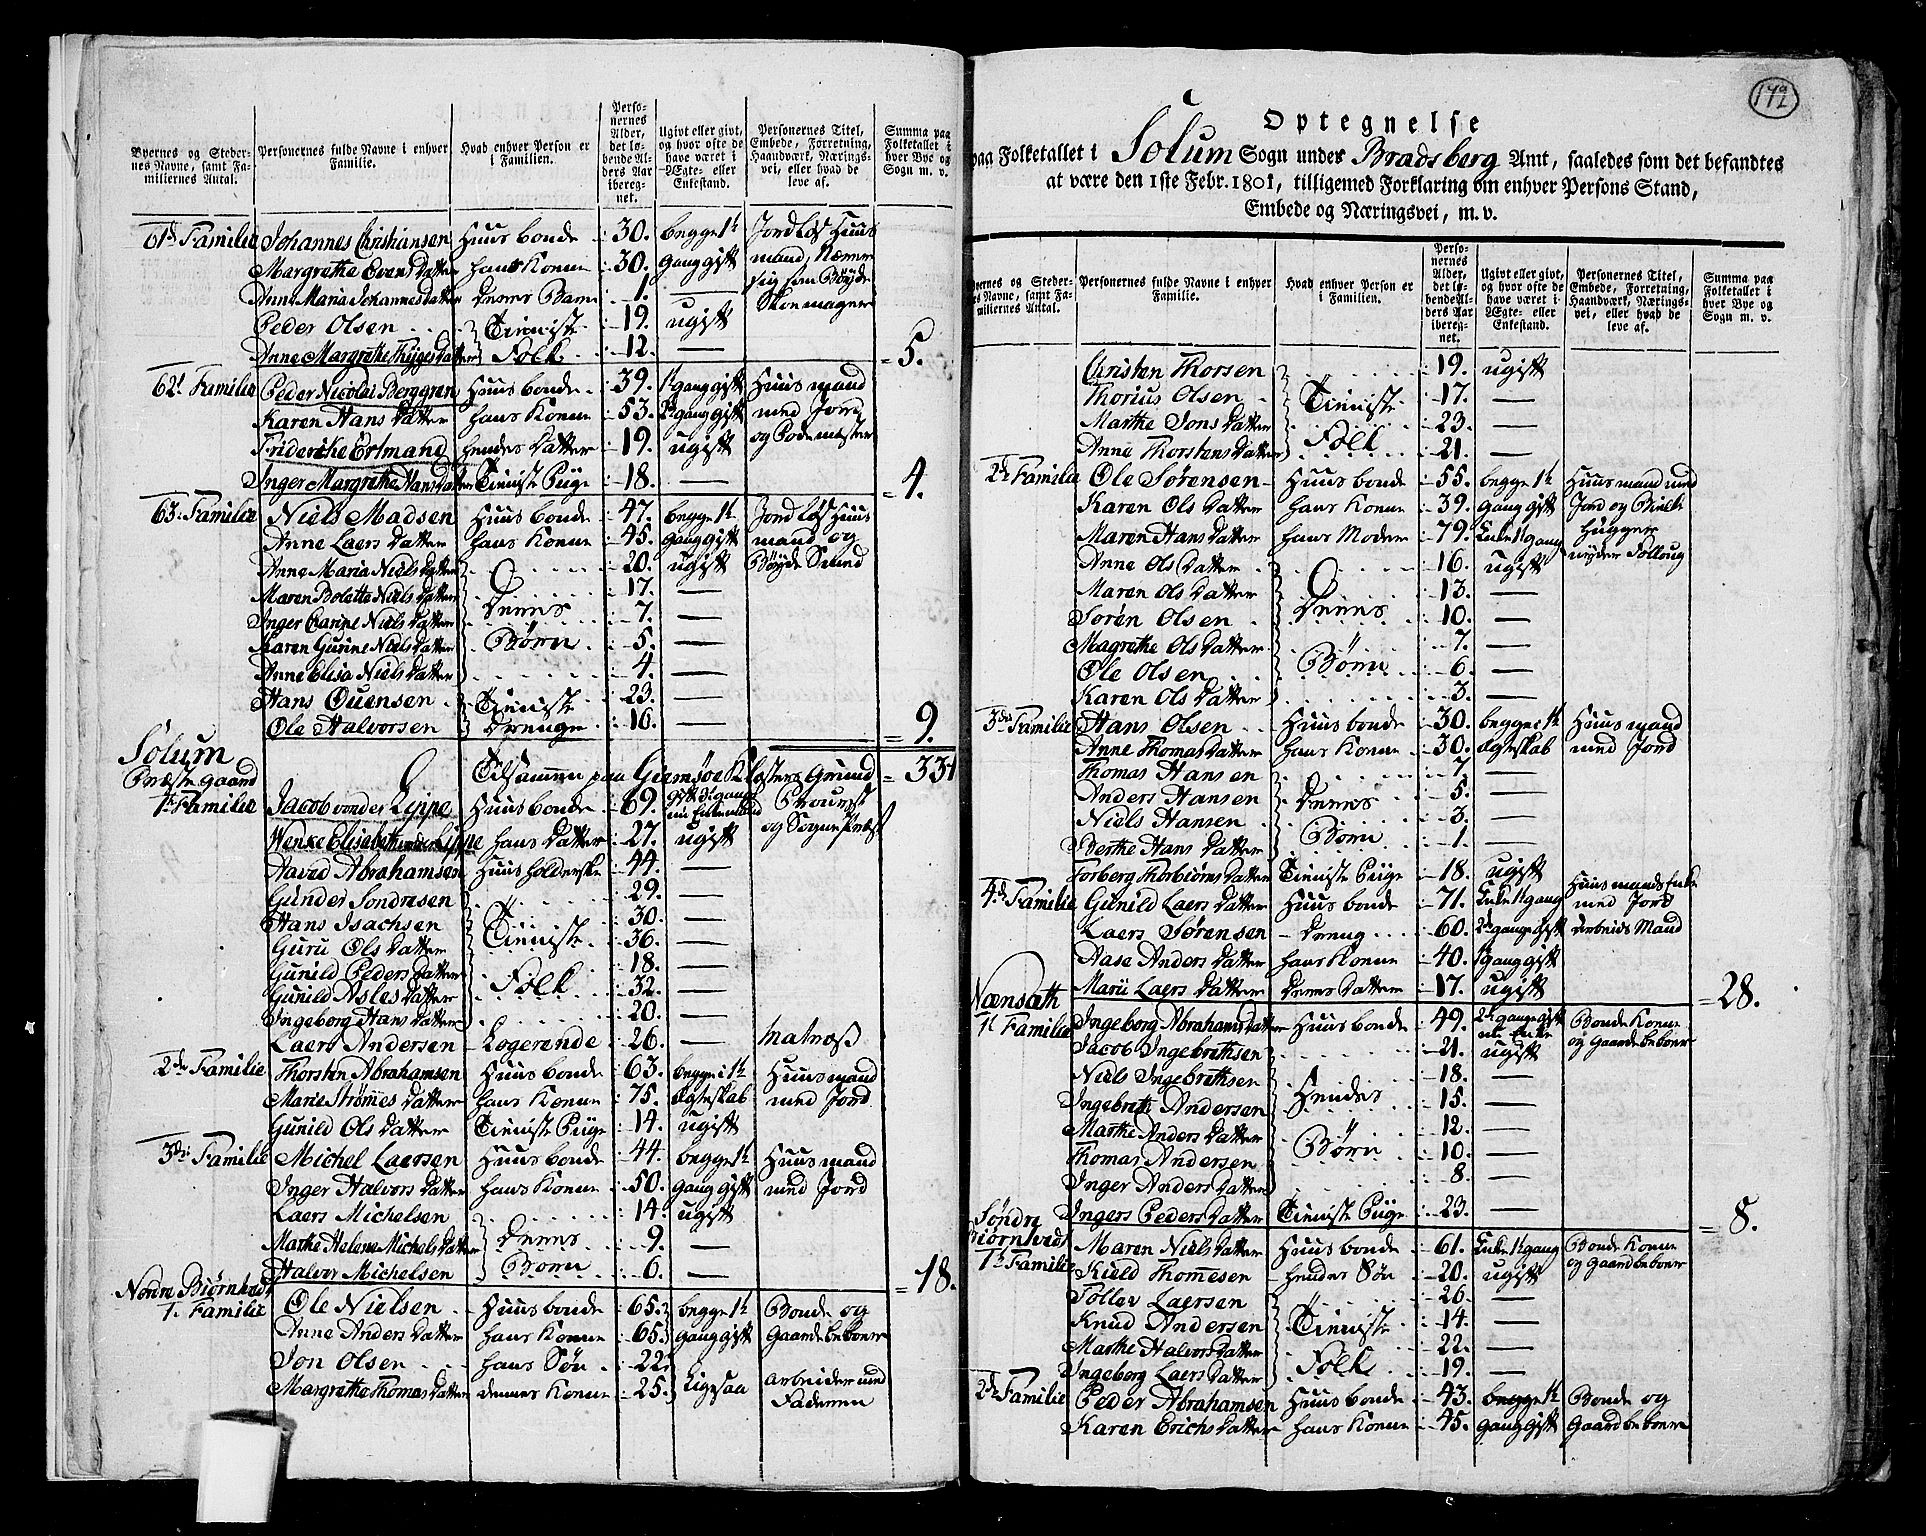 Byernes og Steder-
nes Navne, samt Fa-
miliernes Antal.
Personernes fulde Navne i enhver
Familie.
Hvad enhver Person er
i Familien.
Perso-
nernes
Alder,
det lø-
bende Al-
ders Aar
ibereg-
net.
Ugivt eller givt,
og hvor ofte de
have været i
Ægte- eller
Enkestand.
Personernes Titel,
Embede, Forretning,
Haandværk, Nærings-
vei, eller hvad de
leve af.
Summa paa
Folketallet i
hver Bye og
Sogn m. v.
61de Familie Johannes Christiansen Huusbonde 30. begge 1te Jordløs Huus
Margrethe Evens Datter hans Konne 30. gang gift mand, Nærer
Anne Maria Johannes datter Deres Barn 1. — sig som Bøyde
Peder Olsen Tieniste 19. ugift Skoemager
Anne Margrethe Thyges Datter Folk 12. — = 5.
62de Familie Peder Nicolai Berggren Huusbonde 39. 1te gang gift Huusmand
Karen Hans Datter hans Konne 53. 2de gang gift med Jord
Friderike Ertmand hendes Datter 19. ugift og Podemester
Inger Margrethe Hans datter Tieniste Pige 18. — = 4.
63. Familie Niels Madsen Huusbonde 47. begge 1te Jordløs Huus
Anne Laers Datter hans Konne 45. gang gift mand og
Anne Maria Niels Datter 20. ugift Bøyde Smed
Maren Bolette Niels Datter 17. —
Inger Carine Niels Datter Deres 7. —
Karen Gurine Niels Datter Børn 5. —
Anne Elisa Niels Datter 4. —
Hans Ouensen Tieniste 23. —
Ole Halvorsen Drenge 16. — = 9.
Solum
Præste gaard Tilsammen paa Giemsøe Klosters Grund = 331
1te Familie Jacob von der Lippe Huusbonde 69. gift 3de gange nu Enkemand Proust
Wenke Elisabeth von der Lippe hans Datter 27. ugift og Sogne Præst
Aaved Abrahamsen Huusholderske 44. —
Gunder Sondresen 29. —
Hans Isachsen Tieniste 30. —
Guru Ols Datter 36. —
Gunild Peders Datter Folk 18. —
Gunild Asles Datter 32. —
Ingeborg Hans Datter 20. —
Laers Andersen Logerende 26. — Matros
2de Familie Thorsten Abrahamsen Huusbonde 63. begge i 1te Huusmand
Marie Strømes Datter hans Konne 75. ægteskab med Jord
Gunild Ols Datter Tieniste Pige 14. ugift
3die Familie Michel Laersen Huusbonde 44. begge 1te Huusmand
Inger Halvors Datter hans Konne 50. gang gift med Jord
Laers Michelsen 14. ugift
Marthe Helene Michels Datter Deres 9. —
Halvor Michelsen Børn 6. — = 18.
Nordre Biørntvedt
1. Familie Ole Nielsen Huusbonde 65. begge 1te Bonde og
Anne Anders Datter hans Konne 65. gang gift Gaardbeboere
Jon Olsen hans Søn 22. Ligesaa arbeider med
Margrethe Thomas Datter dennes Konne 25. Faderen
172
Optegnelse
paa Folketallet i Solum Sogn under Bradsberg Amt, saaledes som det befandtes
at være den 1ste Febr. 1801, tilligemed Forklaring om enhver Persons Stand,
Embede og Næringsvei, m. v.
Byernes og Steder-
nes Navne, samt Fa-
miliernes Antal.
Personernes fulde Navne i enhver
Familie.
Hvad enhver Person er
i Familien.
Perso-
nernes
Alder,
det lø-
bende Al-
ders Aar
ibereg-
net.
Ugivt eller givt,
og hvor ofte de
have været i
Ægte- eller
Enkestand.
Personernes Titel,
Embede, Forretning,
Haandværk, Nærings-
vei, eller hvad de
leve af.
Summa paa
Folketallet i
hver Bye og
Sogn m. v.
Christen Thorsen 19. ugift
Thorius Olsen Tieniste 17. —
Marthe Jons Datter 23. —
Anne Thorstens Datter Folk 21. —
2de Familie Ole Sørensen Huusbonde 55. begge 1te Huusmand med
Karen Ols Datter hans Konne 39. gang gift Jord og Bielk
Maren Hans Datter hans Moder 79. Enke 1te gang hugger
Anne Ols Datter 16. ugift nyder Tolloug
Maren Ols Datter 13. —
Søren Olsen Deres 10. —
Magrethe Ols Datter 7. —
Ole Olsen Børn 6. —
Karen Ols Datter 3. —
3die Familie Hans Olsen Huusbonde 30. begge 1te Huusmand
Anne Thomas Datter hans Konne 30. ægteskab med Jord
Thomas Hansen 7. —
Anders Hansen Deres 5. —
Niels Hansen 3. —
Berthe Hans Datter Børn 1. —
Torberg Thorbiørns Datter Tieniste Pige 18. ugift
4de Familie Gunild Laers Datter Huusbonde 71. Enke 1te gang Huusmands Enke med Jord
Laers Sørensen Dreng 60. 2de gange gift Arbeids Mand
Aase Anders Datter hans Konne 40. 1te gang gift
Marie Laers Datter Deres Datter 17. ugift = 28.
Nænsæth
1te Familie Ingeborg Abrahams Datter Huusbonde 49. 2de gange gift nu Enke Bonde Konne
Jacob Ingebrethsen 21. ugift og Gaardbeboer
Niels Ingebrethsen 18. —
Ingebreth Andersen Hendes 15. —
Marthe Anders Datter 12. —
Thomas Andersen Børn 10. —
Inger Anders Datter 8. —
Ingers Peders Datter Tieniste Pige 23. — = 8.
Søndre
Biørntvedt Maren Niels Datter Huusbonde 61. Enke 1te gang Bonde Konne
1te Familie Kield Thommesen hendes Søn 20. ugift og Gaardbeboer
Tollev Laersen 26. —
Knud Andersen Tieniste 14. —
Marthe Halvors Datter 22. —
Ingeborg Laers Datter Folk 19. —
2de Familie Peder Abrahamsen Huusbonde 43. begge 1te Bonde og
Karen Erichs Datter hans Konne 45. gang gift Gaardbeboere